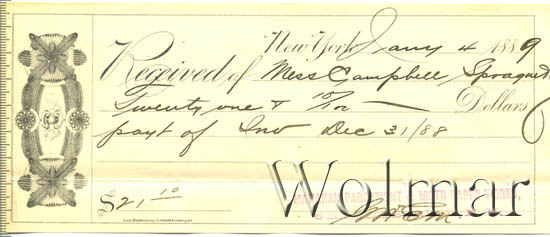 New York Jany 4 1889
Received of Mess Campbell Sprague
Twenty one & 10/100 Dollars
payt of Inv Dec 31/88
Wolmar
$21 10